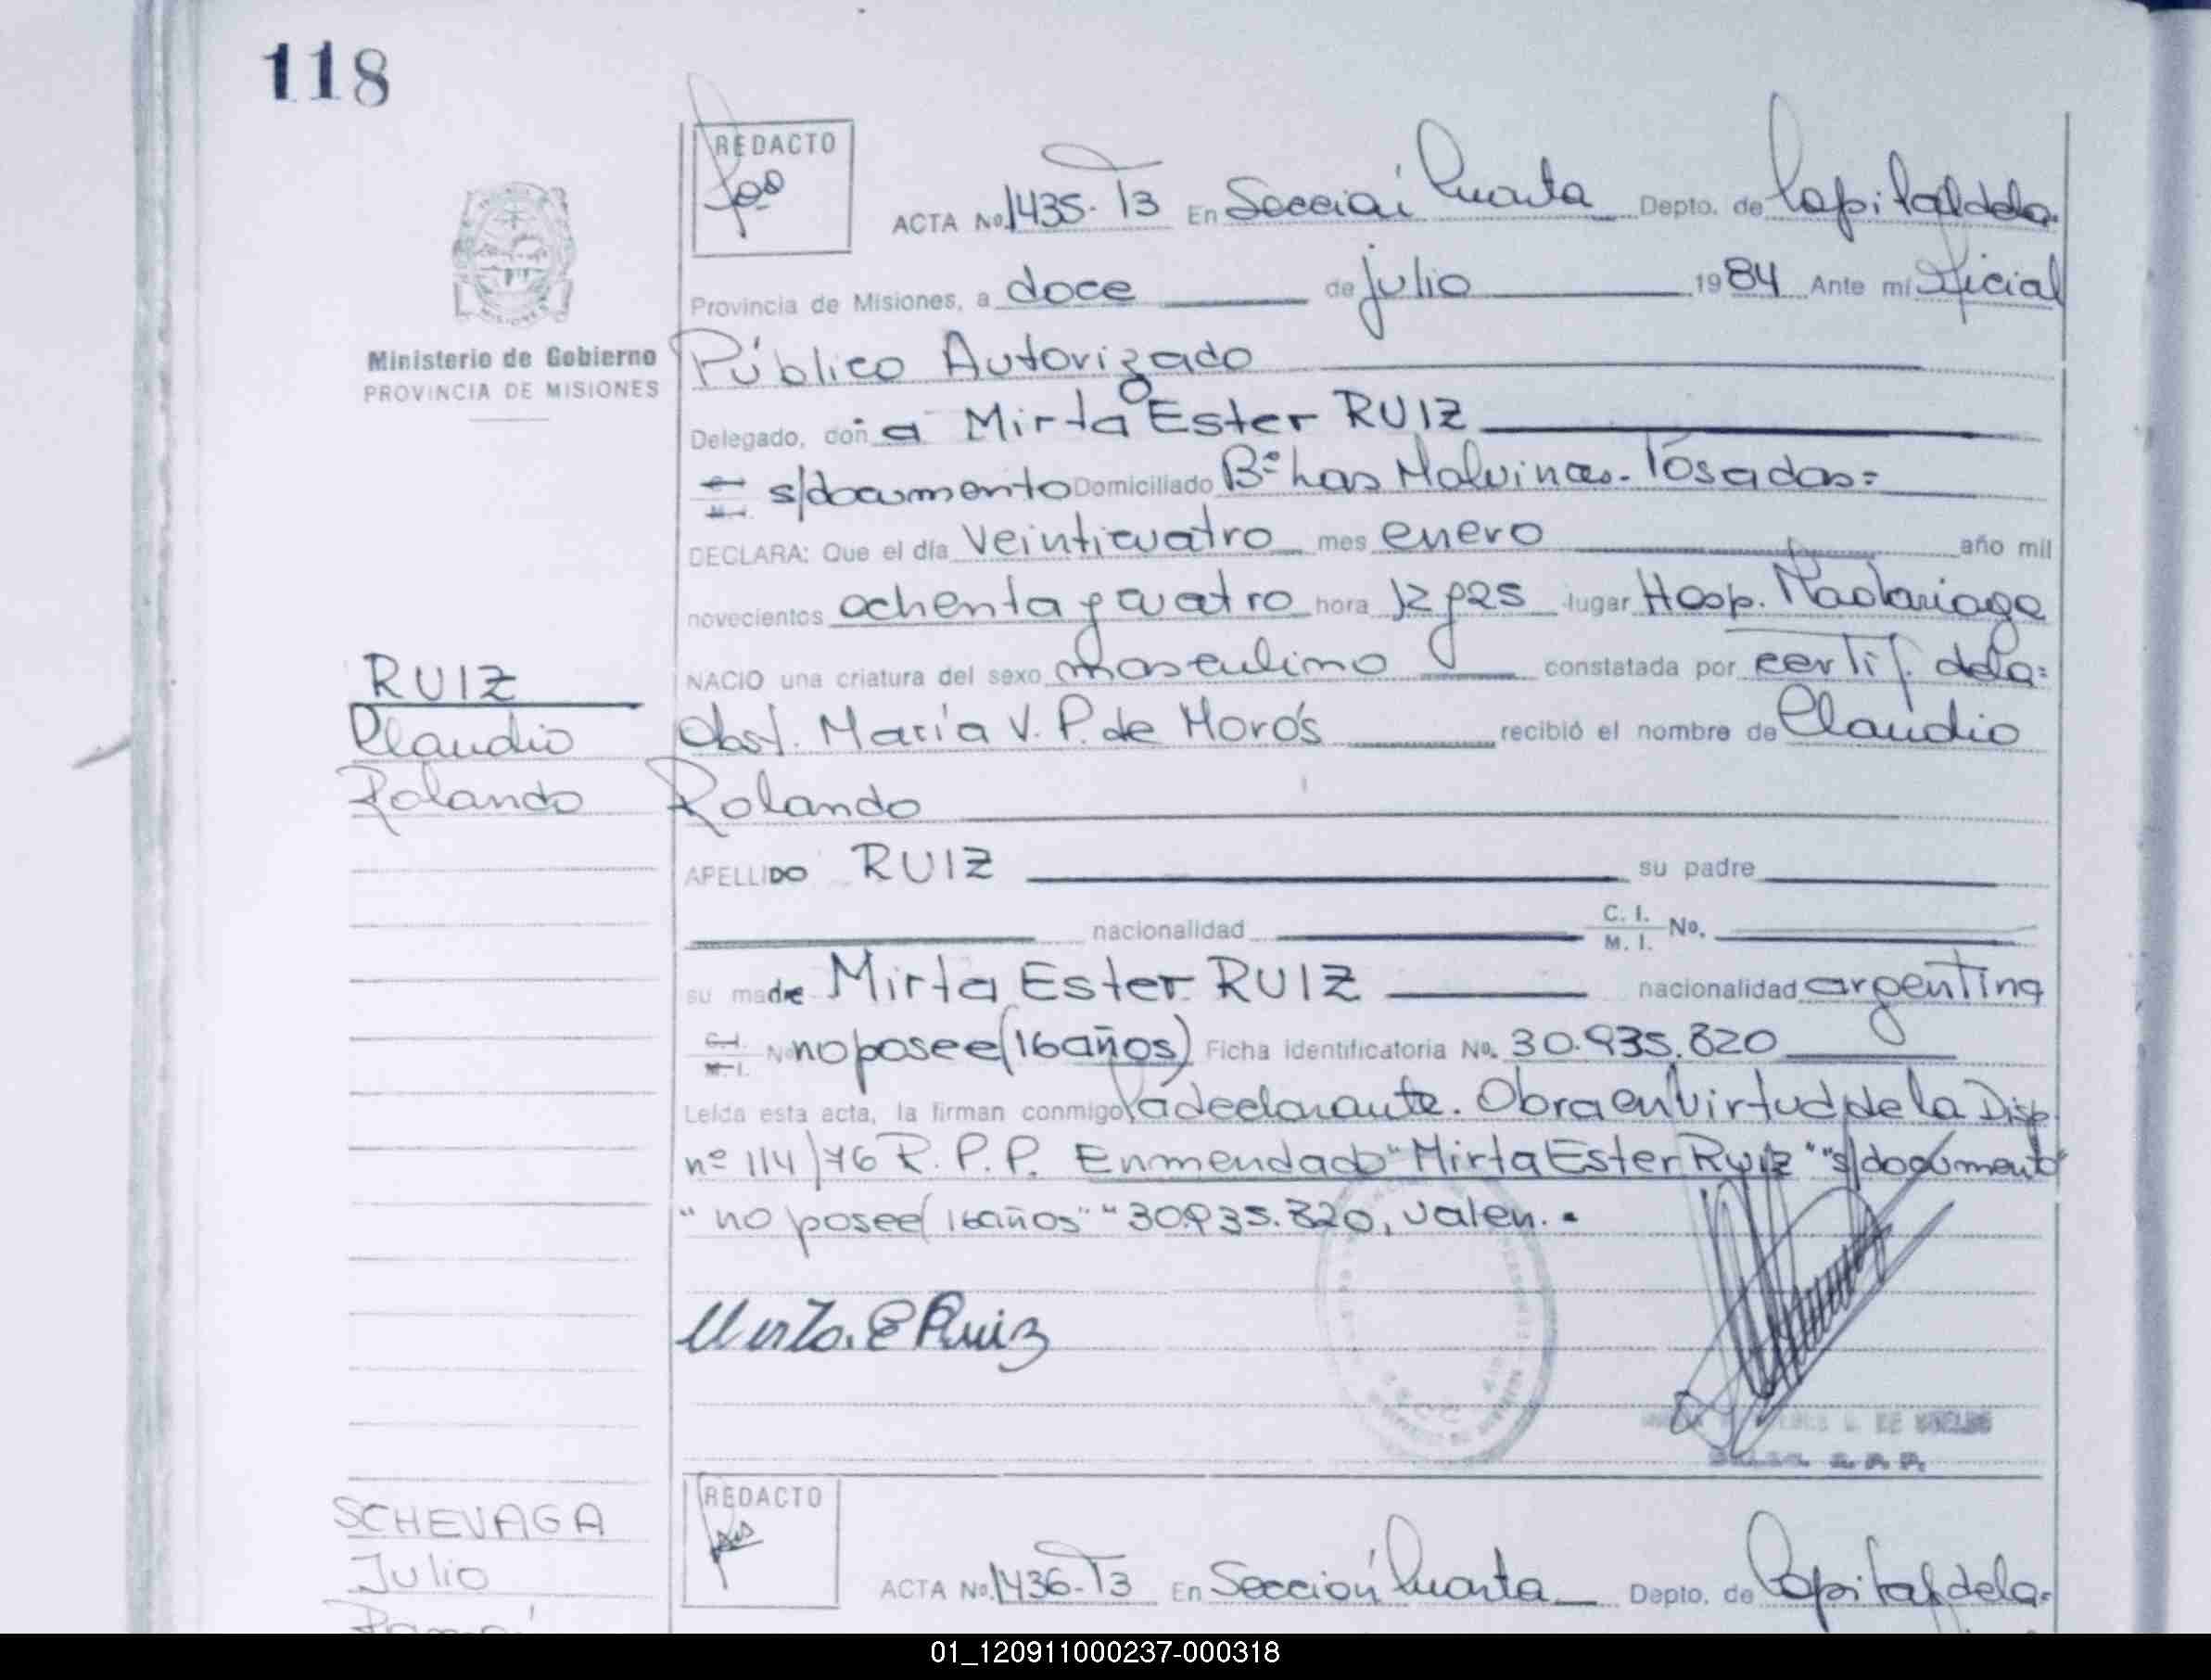 118
REDACTO
ACTA No. 1435-T3 En Sección Cuarta Depto. de Capital de la-
Provincia de Misiones, a doce de julio 1984 Ante mí Oficial
Ministerio de Gobierno
PROVINCIA DE MISIONES
Público Autorizado
Delegado, doña Mirta Ester RUIZ
s/documento Domiciliado B° Las Malvinas-Posadas=
DECLARA: Que el día veinticuatro mes enero año mil
novecientos ochenta y cuatro hora 12 y 25 lugar Hosp. Madariaga
NACIO una criatura del sexo masculino constatada por certif. de la=
RUIZ
Claudio
Rolando
Obst. María V. P. de Morós recibió el nombre de Claudio
Rolando
APELLIDO RUIZ su padre
nacionalidad C. I. M. I. No.
su madre Mirta Ester RUIZ nacionalidad argentina
C. I. M. I. No no posee (16 años) Ficha identificatoria No. 30.935.820
Leída esta acta, la firman conmigo la declarante. Obra en Virtud de la Disp.
nº 114/76 R. P. P. Enmendado "Mirta Ester Ruiz" "s/documento"
"no posee (16 años" "30.935.820, valen.-
Mirta. E Ruiz
SCHEVAGA
Julio
REDACTO
ACTA No. 1436-T3 En Sección Cuarta Depto. de Capital de la-
01_120911000237-000318